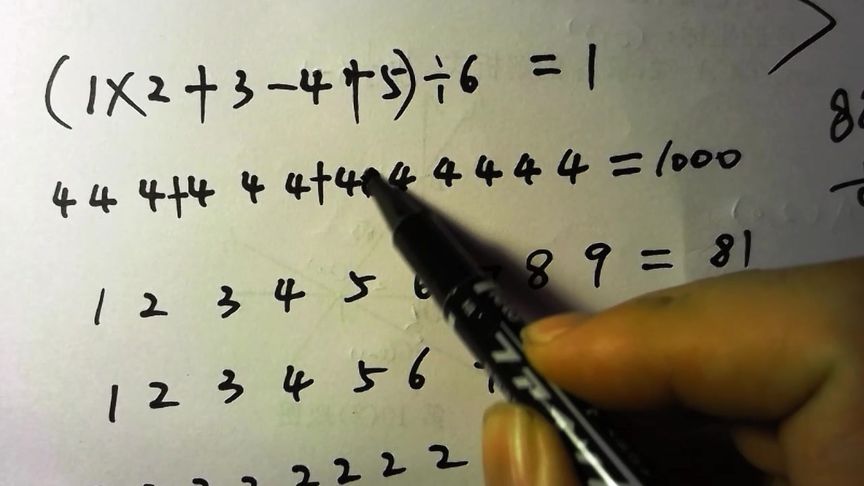 (1×2+3-4+5)÷6 = 1
4 4 4+4 4 4+4 4 4 4 4 4 = 1000
1 2 3 4 5 6 8 9 = 81
1 2 3 4 5 6
2 2 2 2 2